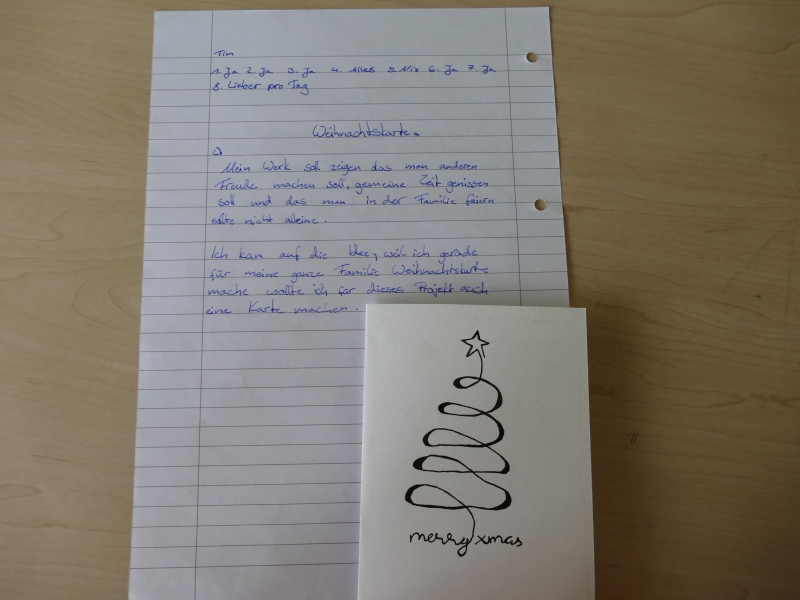 Tim
1. Ja 2. Ja 3. Ja 4. Alles 5. Nix 6. Ja 7. Ja
8. Lieber pro Tag
Weihnachtskarte.
c)
Mein Werk soll zeigen das man anderen
Freude machen soll, gemeine Zeit genissen
soll und das man in der Familie feiern
sollte nicht alleine.
Ich kam auf die Idee, weil ich gerade
für meine ganze Familie Weihnachtskarte
mache wollte ich für dieses Projekt auch
eine Karte machen.
merry xmas